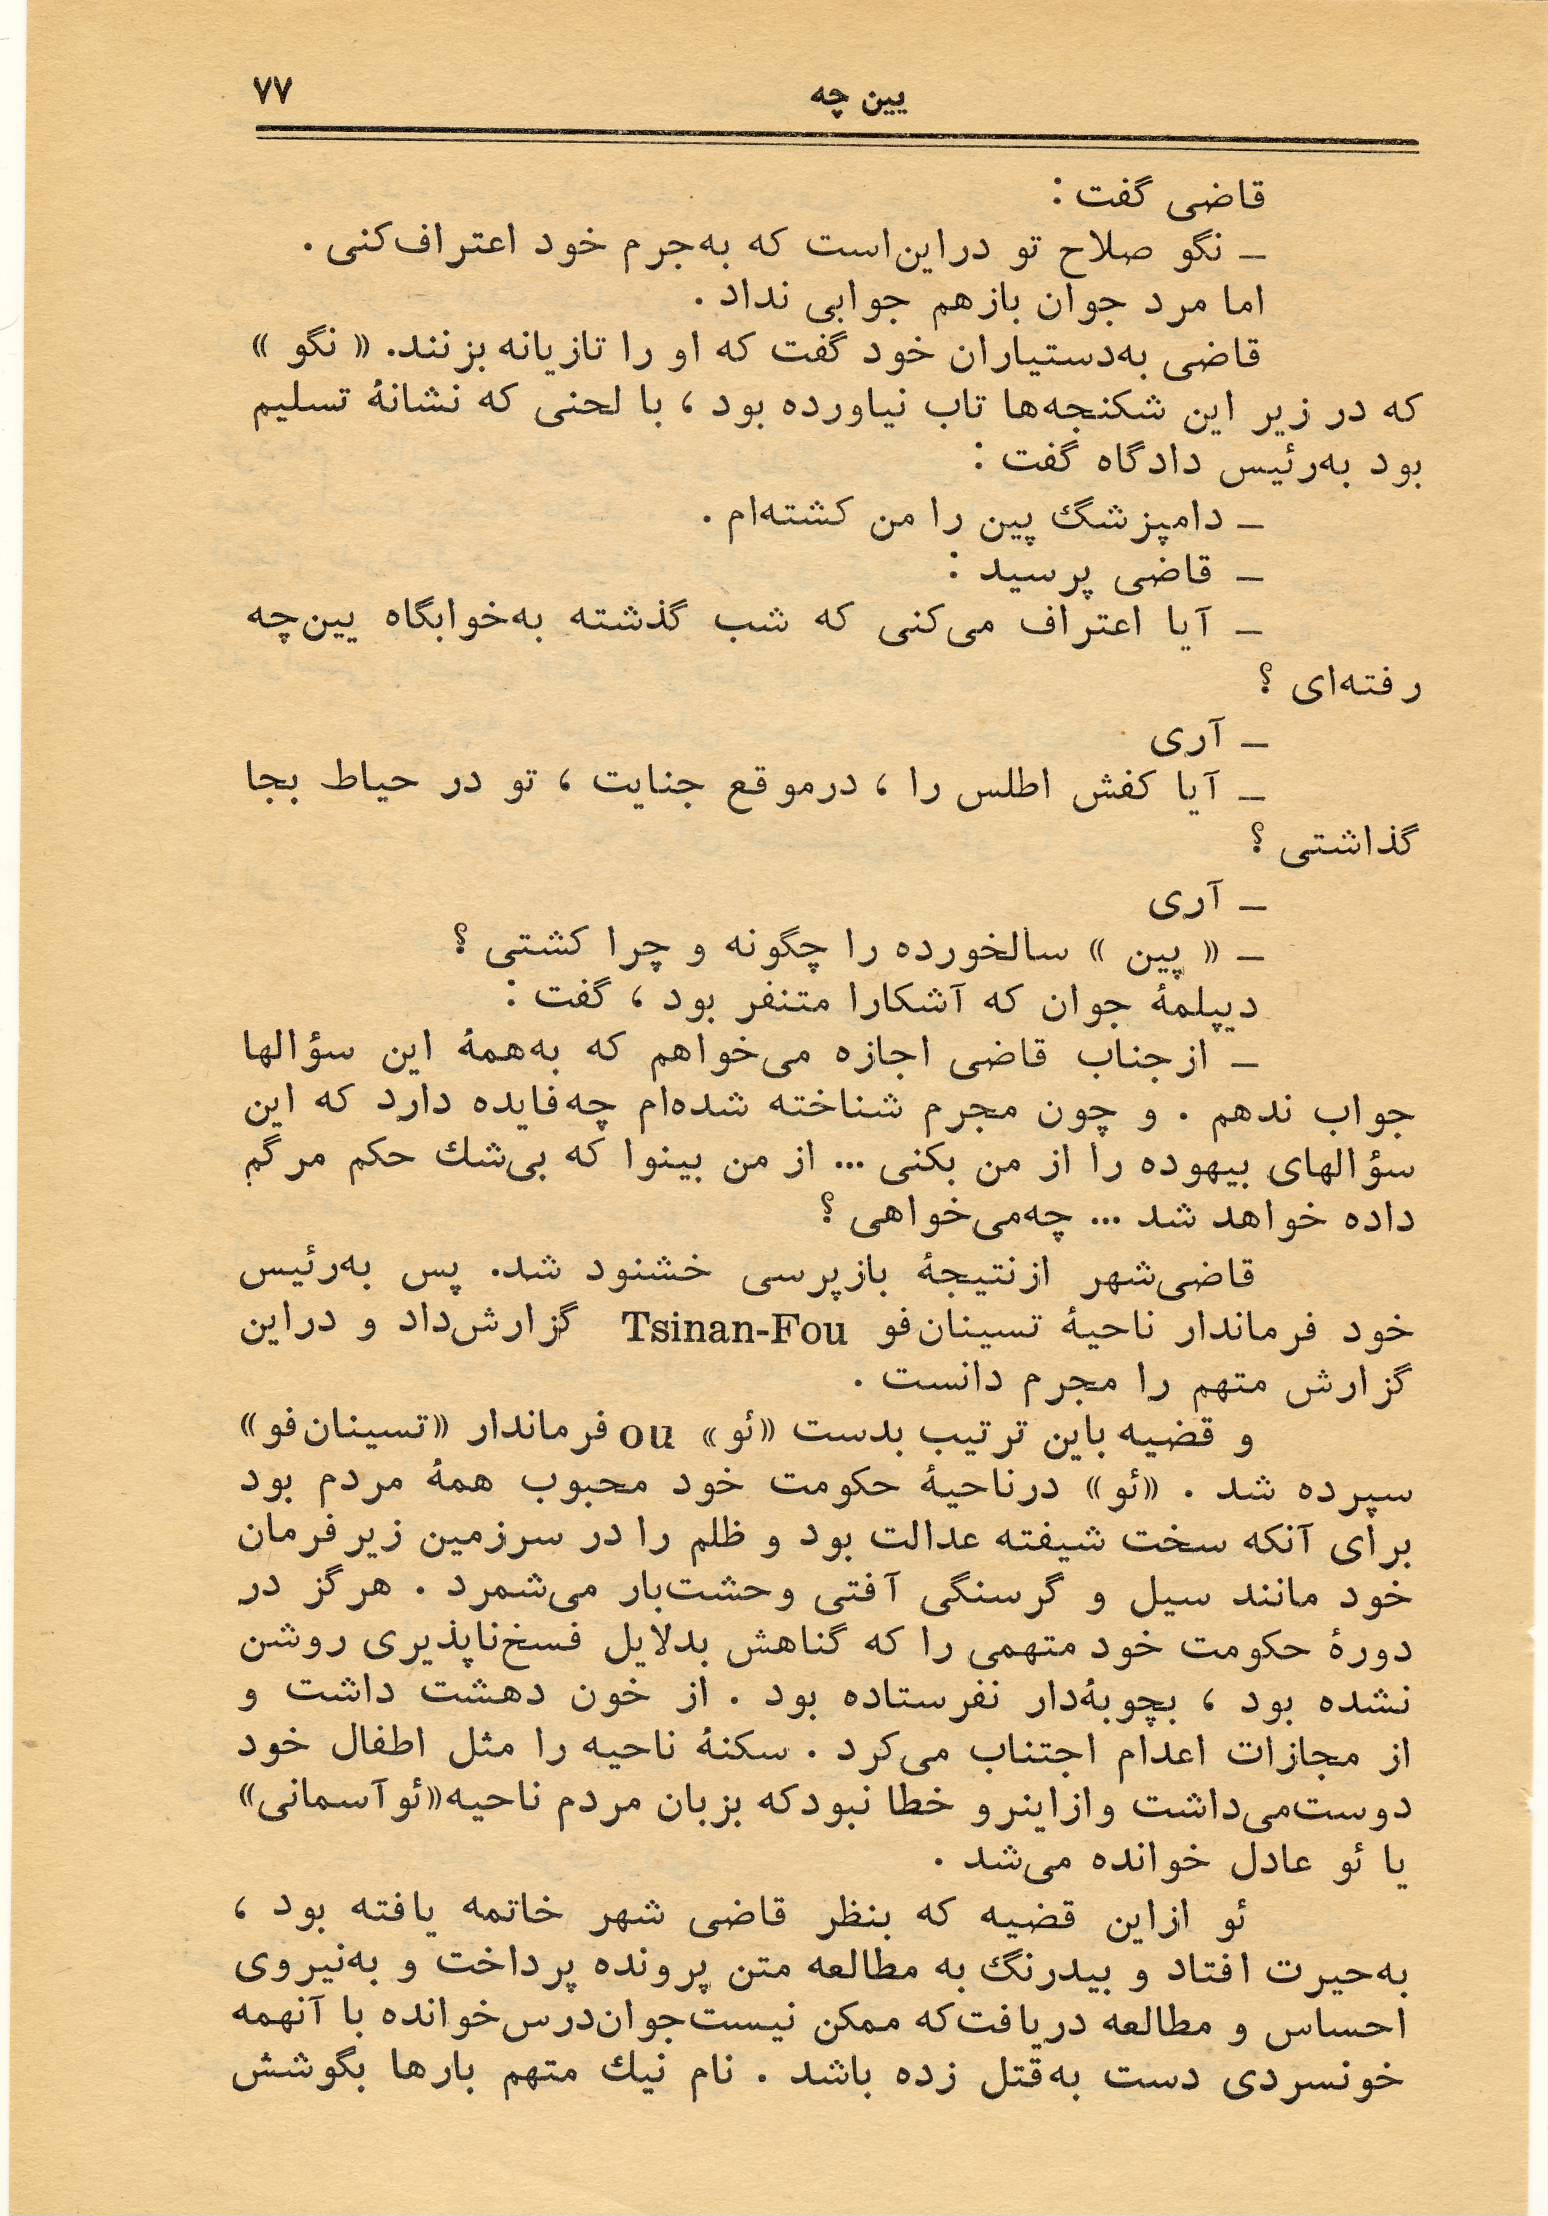 یین چه ۷۷
قاضی گفت :
ــ نگو صلاح تو دراین‌است که به‌جرم خود اعتراف‌کنی .
اما مرد جوان بازهم جوابی نداد .
قاضی به‌دستیاران خود گفت که او را تازیانه بزنند. « نگو »
که در زیر این شکنجه‌ها تاب نیاورده بود ، با لحنی که نشانهٔ تسلیم
بود به‌رئیس دادگاه گفت :
ــ دامپزشگ پین را من کشته‌ام .
ــ قاضی پرسید :
ــ آیا اعتراف می‌کنی که شب گذشته به‌خوابگاه یین‌چه
رفته‌ای ؟
ــ آری
ــ آیا کفش اطلس را ، درموقع جنایت ، تو در حیاط بجا
گذاشتی ؟
ــ آری
ــ « پین » سالخورده را چگونه و چرا کشتی ؟
دیپلمهٔ جوان که آشکارا متنفر بود ، گفت :
ــ ازجناب قاضی اجازه می‌خواهم که به‌همهٔ این سؤالها
جواب ندهم . و چون مجرم شناخته شده‌ام چه‌فایده دارد که این
سؤالهای بیهوده را از من بکنی ... از من بینوا که بی‌شك حکم مرگم
داده خواهد شد ... چه‌می‌خواهی ؟
قاضی‌شهر ازنتیجهٔ بازپرسی خشنود شد. پس به‌رئیس
خود فرماندار ناحیهٔ تسینان‌فو Tsinan-Fou گزارش‌داد و دراین
گزارش متهم را مجرم دانست .
و قضیه باین ترتیب بدست «ئو» ou فرماندار «تسینان‌فو»
سپرده شد . «ئو» درناحیهٔ حکومت خود محبوب همهٔ مردم بود
برای آنکه سخت شیفته عدالت بود و ظلم را در سرزمین زیرفرمان
خود مانند سیل و گرسنگی آفتی وحشت‌بار می‌شمرد . هرگز در
دورهٔ حکومت خود متهمی را که گناهش بدلایل فسخ‌ناپذیری روشن
نشده بود ، بچوبهٔ‌دار نفرستاده بود . از خون دهشت داشت و
از مجازات اعدام اجتناب می‌کرد . سکنهٔ ناحیه را مثل اطفال خود
دوست‌می‌داشت وازاینرو خطا نبودکه بزبان مردم ناحیه«ئوآسمانی»
یا ئو عادل خوانده می‌شد .
ئو ازاین قضیه که بنظر قاضی شهر خاتمه یافته بود ،
به‌حیرت افتاد و بیدرنگ به مطالعه متن پرونده پرداخت و به‌نیروی
احساس و مطالعه دریافت‌که ممکن نیست‌جوان‌درس‌خوانده با آنهمه
خونسردی دست به‌قتل زده باشد . نام نیك متهم بارها بگوشش